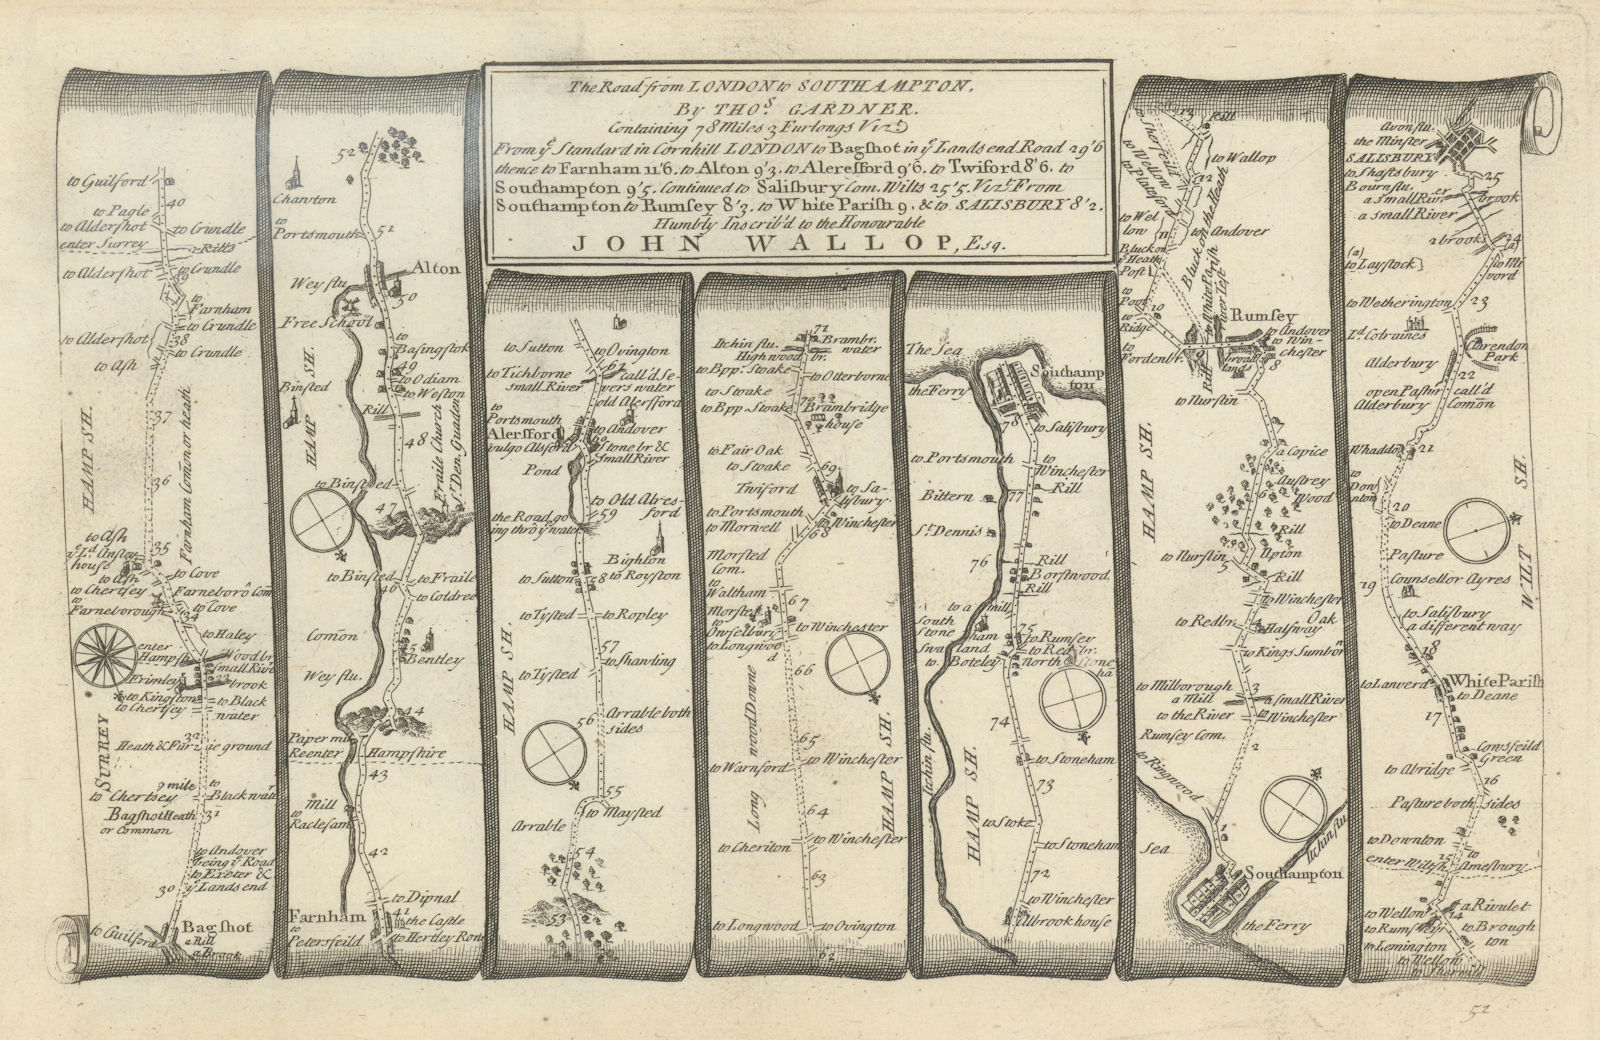 The Road from LONDON to SOUTHAMPTON.
By THOS. GARDNER.
Containing 78 Miles 3 Furlongs Vizt.
From ye Standard in Cornhill LONDON to Bagshot in ye Lands end Road 29'6
thence to Farnham 11'6. to Alton 9'3. to Aleresford 9'6. to Twiford 8'6. to
Southampton 9'5. Continued to Salisbury Com. Wilts 25'5. Vizt. From
Southampton to Rumsey 8'3. to White Parish 9. & to SALISBURY 8'2.
Humbly Inscrib'd to the Honourable
JOHN WALLOP, Esq.
to Guilford
40
to Pagle
to Aldershot
to Crundle
enter Surrey
Rills
to Aldershot
to Crundle
39
to Farnham
to Crundle
to Aldershot
38
to Crundle
to Ash
Farnham Comon or heath
37
HAMP SH.
36
to Ash
35
ye Ld. Ansley
house
to Cove
to Ash
to Chertsey
Farneboro Com
to
Farneborough
to Cove
34
to Haley
enter
Hampsh
Wood br.
small River
Frimley
33
brook
to Kingston
to Chertsey
to Black
water
SURREY
32
Heath & Furzie ground
9 mile
to Chertsey
to
Blackwater
Bagshot Heath
or Common
31
to Andover
being ye Road
to Exeter &
ye Lands end
30
to Guilford
Bagshot
a Rill
a Brook
52
Chawton
to
Portsmouth
51
Alton
Wey flu
50
Free School
to
Basingstok
49
HAMP SH.
Binsted
to Odiam
to Weston
Rill
48
Fraile Church
Sr. Den. Guaden
to Binsted
47
to Binsted
to Fraile
46
to Coldree
Comon
45
Bentley
Wey flu.
44
Paper mill
Reenter
Hampshire
43
Mill
to
Raclesam
42
to Dipnal
Farnham
41
the Castle
to
Petersfeild
to Hertley Row
to Sutton
to Ovington
61
to Tichborne
small River
call'd Se-
vers water
old Alersford
to
Portsmouth
Alersford
vulgo Alsford
to Andover
60
Stone br &
small River
Pond
to Old Alres-
ford
the Road go
ing thro ye water
59
Bighton
to Sutton
58
to Royston
to Tysted
to Ropley
57
to Shanding
HAMP SH.
to Tysted
56
Arrable both
sides
55
to Maysted
Arrable
54
53
71
Itchin flu.
Brambr.
water
Highwood
br.
to Bpp. Stoake
to Otterborne
to Stoake
70
to Bpp. Stoake
Brambridge
house
to Fair Oak
to Stoake
69
Twiford
to Sa-
lisbury
to Portsmouth
to Morwell
to Winchester
68
Morsted
Com.
to
Waltham
67
Morsted
to
Owselbury
to Winchester
to Longwoo
d
66
Long wood Downe
HAMP SH.
65
to Warnford
to Winchester
64
to Cheriton
to Winchester
63
to Longwood
to Ovington
62
The Sea
Southamp
ton
the Ferry
78
to Salisbury
to Portsmouth
to
Winchester
Rill
Bittern
77
St. Dennis
76
Rill
Borstwood
Rill
to a mill
South
Stone
ham
75
to Rumsey
to Red br.
Swathland
to Boteley
North Stone
ha
74
Itchin flu.
to Stoneham
HAMP SH.
73
to Stoke
to Stoneham
72
to Winchester
Albrook house
13
Rill
to Sherfeild
to Wellow
to Platford
to Wallop
12
to Wel
low
11
to Andover
Black on the Heath
Black on
ye Heath
Post
to
Pool
10
to
Ridge
Rumsey
to Andover
to Win-
chester
to
Fordenbr.
9
Rill
broad
land
8
to Nurstin
7
a Copice
HAMP SH.
Austrey
Wood
6
Rill
to Nurstin
Upton
5
Rill
to Winchester
Oak
to Redbr.
4
Halfway
to Kings Sumborn
to Milborough
a Mill
3
a small River
to the River
to Winchester
Rumsey Com.
2
to Ringwood
1
Sea
Itchin flu
Southampton
the Ferry
Avon flu.
the Minster
SALISBURY
to Shaftsbury
25
Bourn flu.
a small River
brook
a small River
2 brooks
24
to Laystock
to Mil
vord
to Wetherington
23
Ld. Cobraines
Clarendon
Park
Alderbury
22
open Pastur
call'd
Alderbury
Comon
Whaddon
21
to
Down
nton
20
to Deane
WILT SH.
Pasture
19
Counsellor Ayres
to Salisbury
a different way
18
White Parish
to Lanverd
to Deane
17
Cowsfeild
Green
to Abridge
16
Pasture both sides
to Downton
15
to
Amesbury
enter Wiltsh
to Wellow
14
a Rivulet
to Rumsey
to Brough
ton
to Lemington
to Wellow
to Sherveild
52